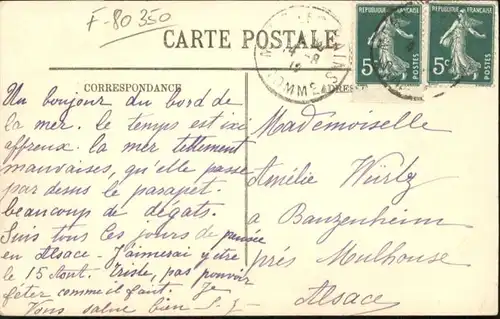 F-80350
CARTE POSTALE
CORRESPONDANCE
Un bonjour du bord de
la mer. le temps est ici
affreux. la mer tellement
mauvaises, qu'elle passe
par desus le parapet.
beaucoup de dégats.
Suis tous les jours de pensée
en Alsace. J'aimerai y être
le 15 Aout. triste, pas pouvoir
fêter comme il faut. Je
Vous salue bien S. J-
REPUBLIQUE FRANÇAISE
5c
POSTES
REPUBLIQUE FRANÇAISE
5c
POSTES
BAINS
SOMME
Mademoiselle
Amélie Würtz
a Banzenheim
près Mulhouse
Alsace